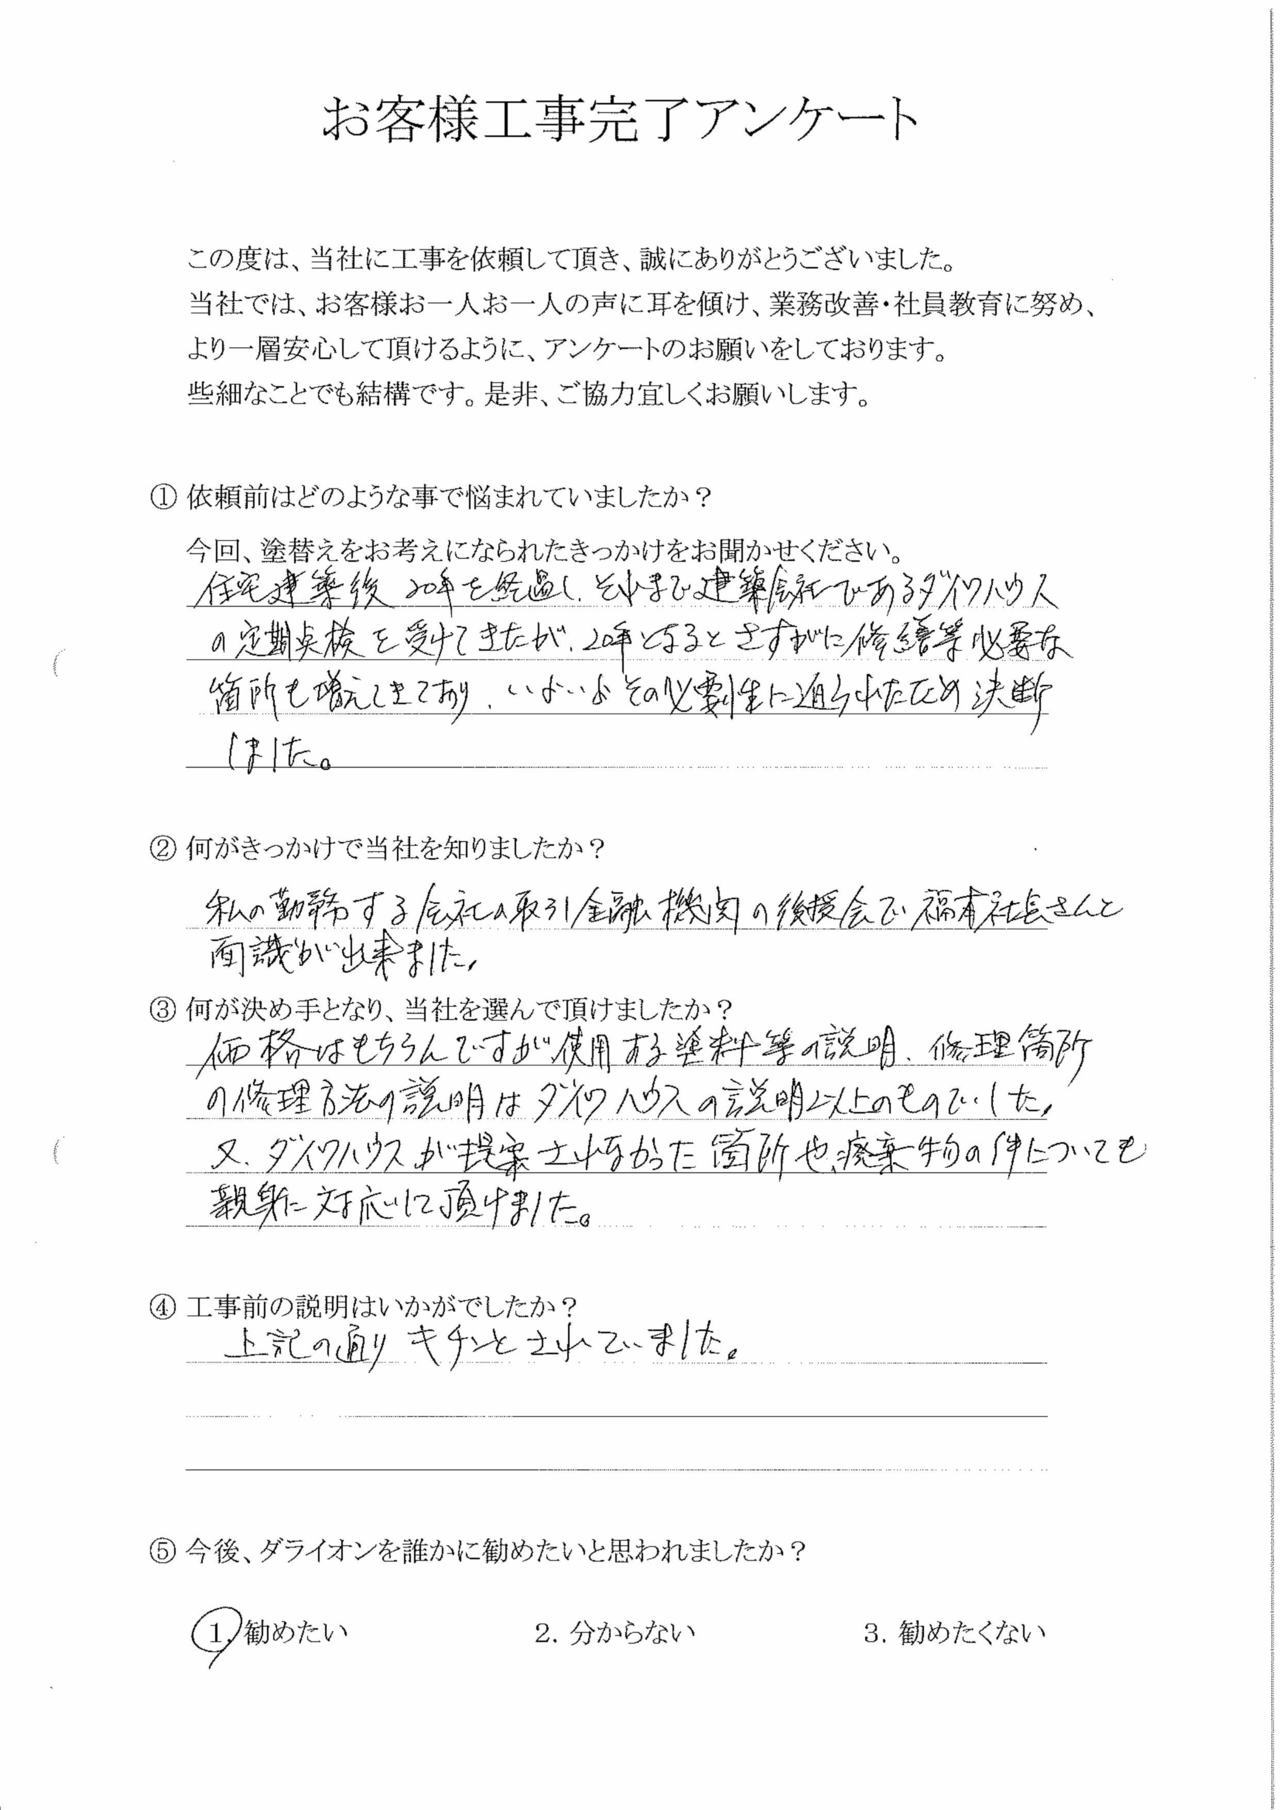 お客様工事完了アンケート
この度は、当社に工事を依頼して頂き、誠にありがとうございました。
当社では、お客様お一人お一人の声に耳を傾け、業務改善・社員教育に努め、
より一層安心して頂けるように、アンケートのお願いをしております。
些細なことでも結構です。是非、ご協力宜しくお願いします。
① 依頼前はどのような事で悩まれていましたか？
今回、塗替えをお考えになられたきっかけをお聞かせください。
住宅建築後 20年を経過し、それまで建築会社であるダイワハウス
の定期点検を受けてきたが、20年となるとさすがに修繕等必要な
箇所も増えてきており、いよいよその必要性に迫られたため決断
しました。
② 何がきっかけで当社を知りましたか？
私の勤務する会社の取引金融機関の後援会で福本社長さんと
面識が出来ました。
③ 何が決め手となり、当社を選んで頂けましたか？
価格はもちろんですが使用する塗料等の説明、修理箇所
の修理方法の説明はダイワハウスの説明以上のものでした。
又、ダイワハウスが提案されなかった箇所や、廃棄物の件についても
親身に対応して頂けました。
④ 工事前の説明はいかがでしたか？
上記の通り キチンとされていました。
⑤ 今後、ダライオンを誰かに勧めたいと思われましたか？
1. 勧めたい 2. 分からない 3. 勧めたくない